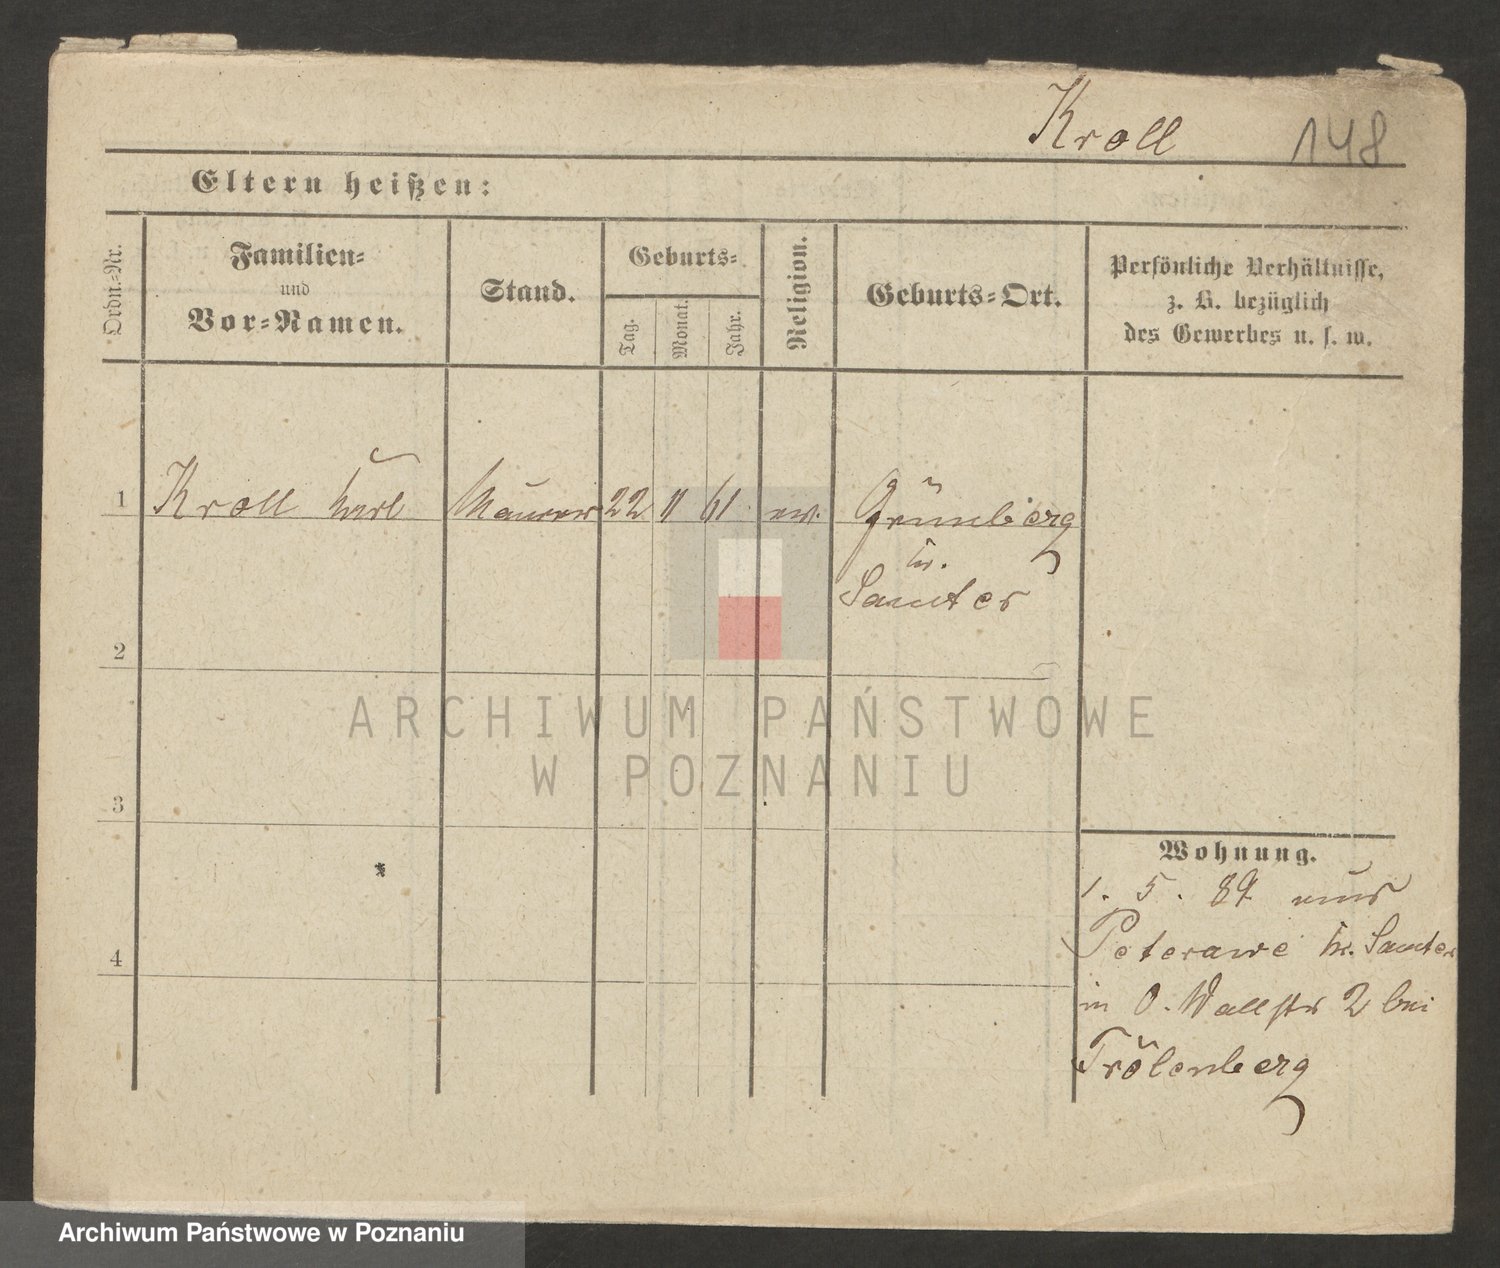 Kroll 148
Eltern heißen:
Ordn.-Nr.
Familien-
und
Vor-Namen.
Stand.
Geburts-
Tag.
Monat.
Jahr.
Religion.
Geburts-Ort.
Persönliche Verhältnisse,
z. B. bezüglich
des Gewerbes u. s. w.
1 Kroll Karl Maurer 22 11 61 ev. Grünberg
Kr.
Samter
2
ARCHIWUM PAŃSTWOWE
W POZNANIU
3
Wohnung.
1. 5. 87 aus
Peterawe Kr. Samter
in O. Wallstr 2 bei
4
Trölenberg
Archiwum Państwowe w Poznaniu